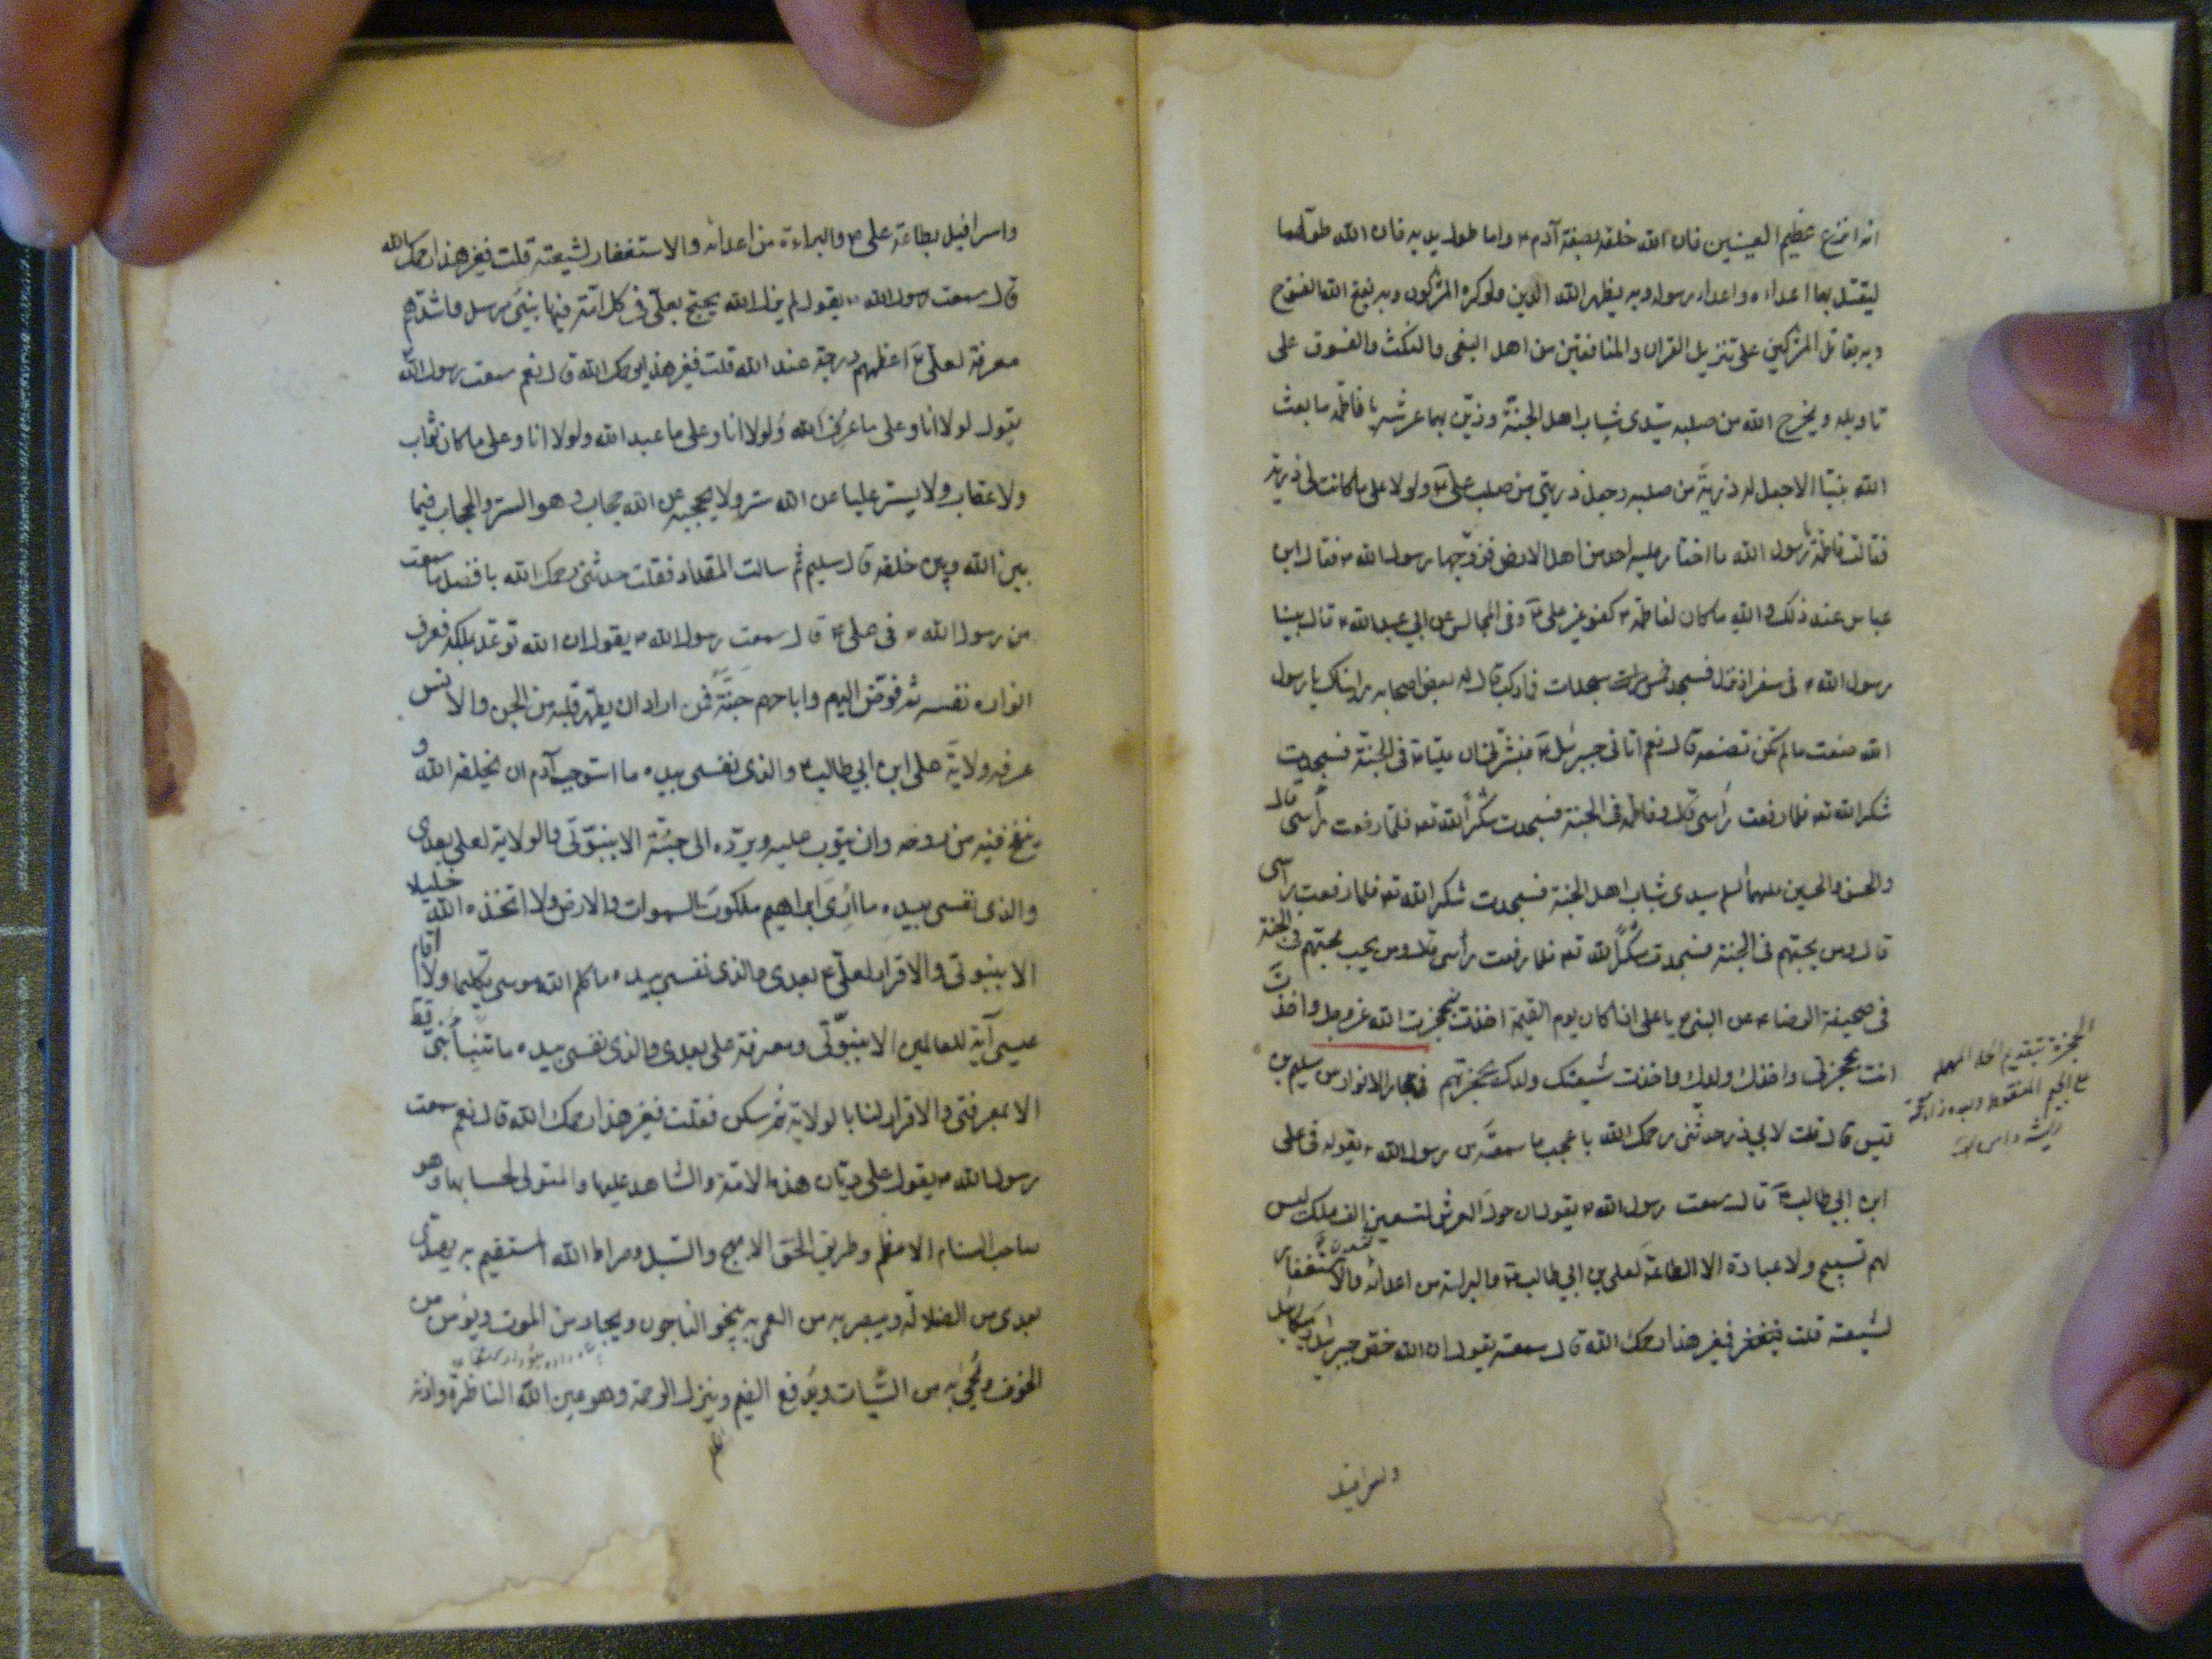 انه انزع عظيم العينين فان الله خلقه بصفة آدم ٤ واما طول يديه فان الله طولهما
ليقتل بهما اعداءه واعداء رسوله وبه يظهر الله الدين ولو كره المشركون وبه يفتح الله الفتوح
وبه يقاتل المشركين على تنزيل القران والمنافقين من اهل البغى والنكث والفسوق على
تاويله ويخرج الله من صلبه سيّدى شباب اهل الجنّة وزيّن بهما عرشه يا فاطمه ما بعث
الله نبيّا الا جعل له ذريةً من صلبه وجعل ذريتى من صلب علىّ ٤ ولولا على ما كانت لى ذرية
فقالت فاطمة يا رسول الله ما اختار عليه احد من اهل الارض فزوّجها رسول الله ٢ فقال ابن
عباس عند ذلك والله ما كان لفاطمة ٤ كفو غير على ٤ وفى المجالس عن ابي عبد الله ٤ قال بينا
رسول الله ٢ فى سفر اذ نزل فسجد خمس سجدات فلما ركب قال له بعض اصحابه رايناك يا رسول
الله صنعت ما لم تكن تصنعه قال نعم اتانى جبرئيل ٤ فبشّرنى ان عليّا ٤ فى الجنّة فسجدت
شكر الله تعه فلما رفعت رأسى قال وفاطمة فى الجنة فسجدت شكراً لله تعه فلمّا رفعت رأسى قال
والحسن والحسين عليهما السلم سيدى شباب اهل الجنة فسجدت شكر الله تعه فلما رفعت رأسى
قال ومن يحبّهم فى الجنة فسجدت شكراً لله تعه فلما رفعت رأسى قال ومن يحب محبّهم فى الجنة
فى صحيفة الرضا ٤ عن النبى ٢ يا على اذا كان يوم القيمة اخذت بحجزة الله عز وجل واخذتَ
انت بحجزتى واخذ ولدك بحجزتك واخذت شيعتك ولدك بحجزتهم فى بحار الانوار من سليم بن
قيس قال قلت لابي ذر حدثنى رحمك الله باعجب ما سمعته من رسول الله ٢ يقوله فى على
ابن ابي طالب ٤ قال سمعت رسول الله ٢ يقول ان حول العرش لتسعين الف ملك ليس
لهم تسبيح ولا عبادة الا الطاعة لعلى بن ابي طالب ٤ والبرائة من اعدائه والاستغفار
لشيعته قلت فغير هذا رحمك الله قال سمعته يقول ان الله خصّ جبرئيل وميكائيل
واسرافيل
الحجزة بتقديم الحاء المهمله
على الجيم المنقوطة
واسرافيل بطاعة على ٤ والبراءة من اعدائه والاستغفار لشيعته قلت فغير هذا رحمك الله
قال سمعت رسول الله ٢ يقول لم يزل الله يحتج بعلىّ فى كل امّة فيها نبىّ مرسل واشدّهم
معرفة لعلىّ ٤ اعظمهم درجة عند الله قلت فغير هذا رحمك الله قال نعم سمعت رسول الله
يقول لولا انا وعلى ما عُرف الله ولولا انا وعلى ما عبد الله ولولا انا وعلى ما كان ثواب
ولا عقاب ولا يستر عليا عن الله ستر ولا يحجبه عن الله حجاب وهو الستر والحجاب فيما
بين الله وبين خلقه قال سليم ثم سالت المقداد فقلت حدثنى رحمك الله بافضل ما سمعت
من رسول الله ٢ فى على ٤ قال سمعت رسول الله ٢ يقول ان الله توحّد بملكه فعرف
انواره نفسه ثم فوّض اليهم واباحهم جنّته فمن اراد ان يطهّر قلبه من الجن والانس
عرفه ولاية على ابن ابي طالب ٤ والذى نفسى بيده ما استوجب آدم ان يخلقه الله و
ينفخ فيه من روحه وان يتوب عليه ويردّه الى جنّته الا بنبوّتى والولاية لعلى بعدى
والذى نفسى بيده ما اُرى ابراهيم ملكوت السموات والارض ولا اتخذه الله خليلا
الا بنبوتى والاقرار لعلىّ ٤ بعدى والذى نفسى بيده ما كلم الله موسى تكليما ولا اقام
عيسى آية للعالمين الا بنبوّتى ومعرفة على بعدى والذى نفسى بيده ما تنبّأ نبىّ قط
الا بمعرفتى والاقرار لنا بالولاية ثم سكن فقلت فغير هذا رحمك الله قال نعم سمعت
رسول الله ٢ يقول على ديّان هذه الامّة والشاهد عليها والمتولى لحسابها وهو
صاحب السنام الاعظم وطريق الحق الابهج والسبل وصراط الله المستقيم به يهدى
بعدى من الضلالة ويبصر به من العمى به ينجو الناجون ويجار من الموت ويؤمن من
الخوف ويُمحىٰ به من السّيّات ويُدفع الضيم وينزل الرحمة وهو عين الله الناظرة واذنه